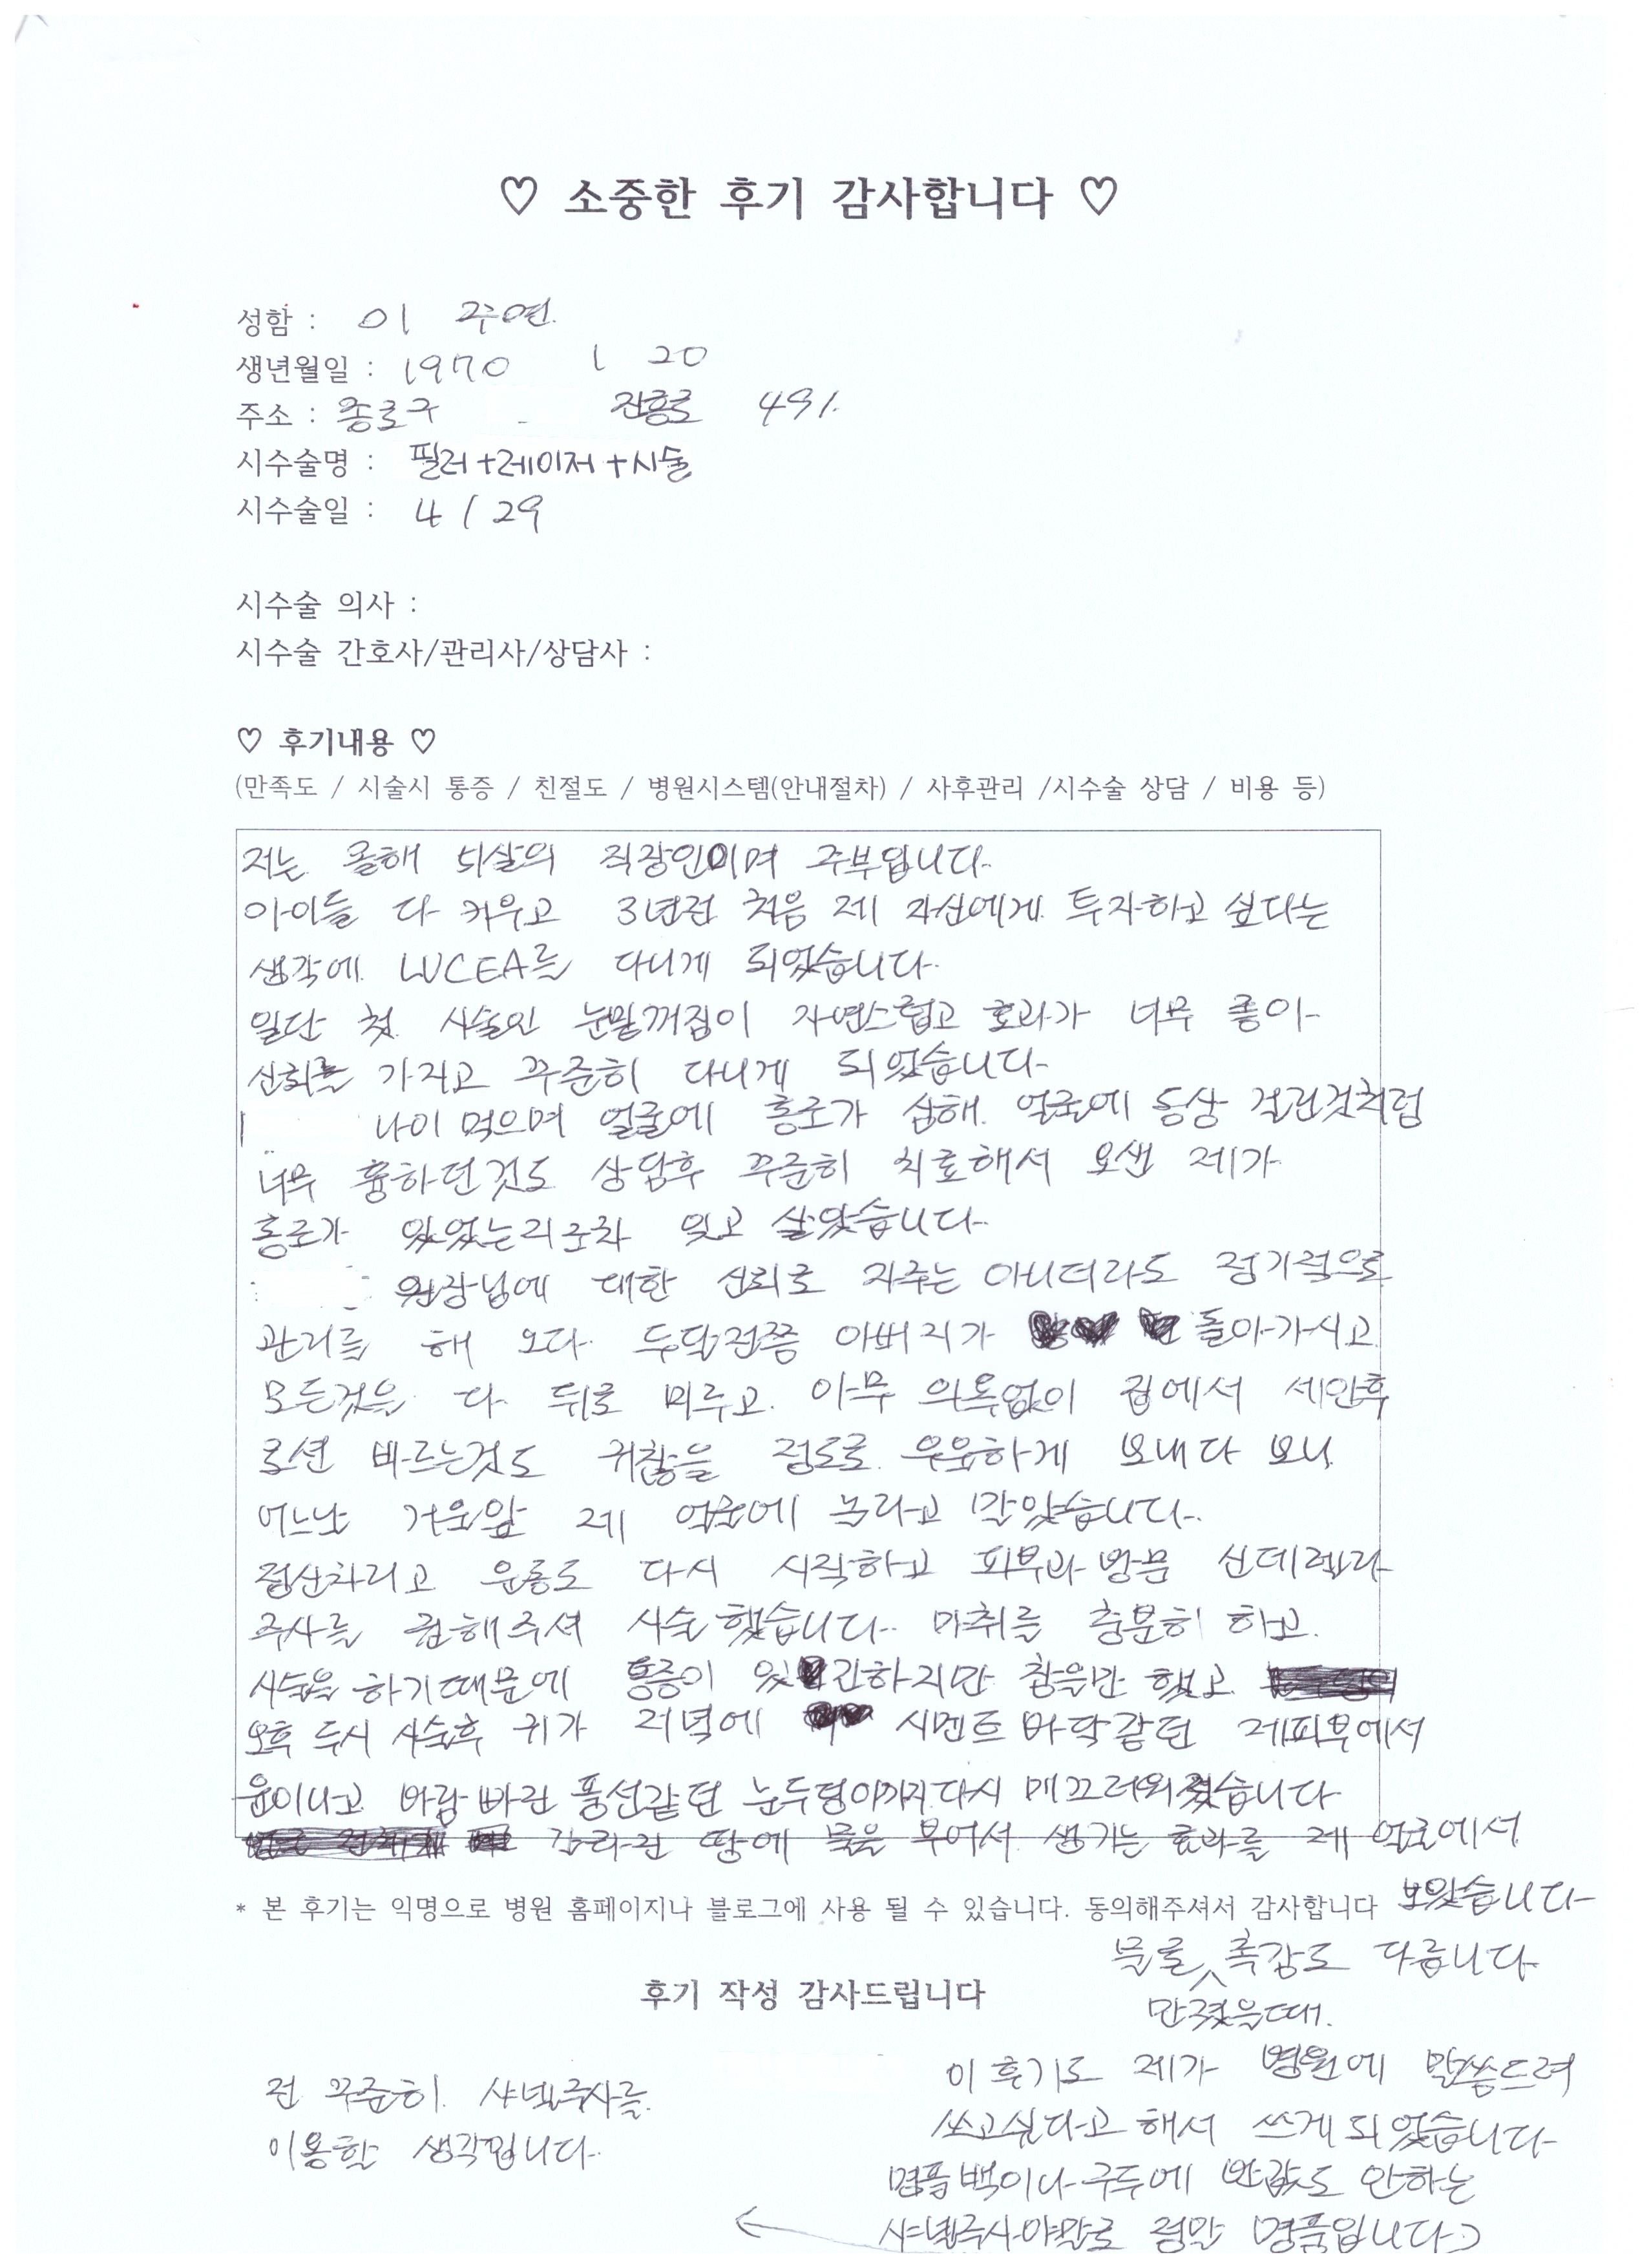 ♡ 소중한 후기 감사합니다 ♡
성함 : 이 주연
생년월일 : 1970 1 20
주소 : 종로구 진흥로 491.
시수술명 : 필러+레이저+시술
시수술일 : 4 / 29
시수술 의사 :
시수술 간호사/관리사/상담사 :
♡ 후기내용 ♡
(만족도 / 시술시 통증 / 친절도 / 병원시스템(안내절차) / 사후관리 /시수술 상담 / 비용 등)
저는 올해 51살의 직장인이며 주부입니다.
아이들 다 키우고 3년전 처음 제 자신에게 투자하고 싶다는
생각에 LUCEA를 다니게 되었습니다.
일단 첫 시술인 눈밑꺼짐이 자연스럽고 효과가 너무 좋아
신뢰를 가지고 꾸준히 다니게 되었습니다.
나이 먹으며 얼굴에 홍조가 심해. 얼굴에 동상 걸린것처럼
너무 흉하던것도 상담후 꾸준히 치료해서 요샌 제가
홍조가 있었는지조차 잊고 살았습니다.
원장님에 대한 신뢰로 자주는 아니더라도 정기적으로
관리를 해 오다 두달전쯤 아버지가 돌아가시고
모든것을 다 뒤로 미루고. 아무 의욕없이 집에서 세안후
로션 바르는것도 귀찮을 정도로 우울하게 보내다 보니
어느날 거울앞 제 얼굴에 놀라고 말았습니다.
정신차리고 운동도 다시 시작하고 피부과 방문 신데렐라
주사를 권해주셔 시술했습니다. 마취를 충분히 하고.
시술을 하기때문에 통증이 있긴하지만 참을만 했고
오후 두시 시술후 귀가 저녁에 시멘트 바닥같던 제피부에서
윤이나고 바람 빠진 풍선같던 눈두덩이까지 다시 매끄러워졌습니다
갈라진 땅에 물을 부어서 생기는 효과를 제 얼굴에서
* 본 후기는 익명으로 병원 홈페이지나 블로그에 사용 될 수 있습니다. 동의해주셔서 감사합니다 보았습니다
물론 촉감도 다릅니다
만졌을때.
후기 작성 감사드립니다
이 후기도 제가 병원에 말씀드려
쓰고싶다고 해서 쓰게되었습니다
명품백이나 구두에 반값도 안하는
샤넬주사야말로 정말 명품입니다
전 꾸준히 샤넬주사를
이용할 생각입니다.